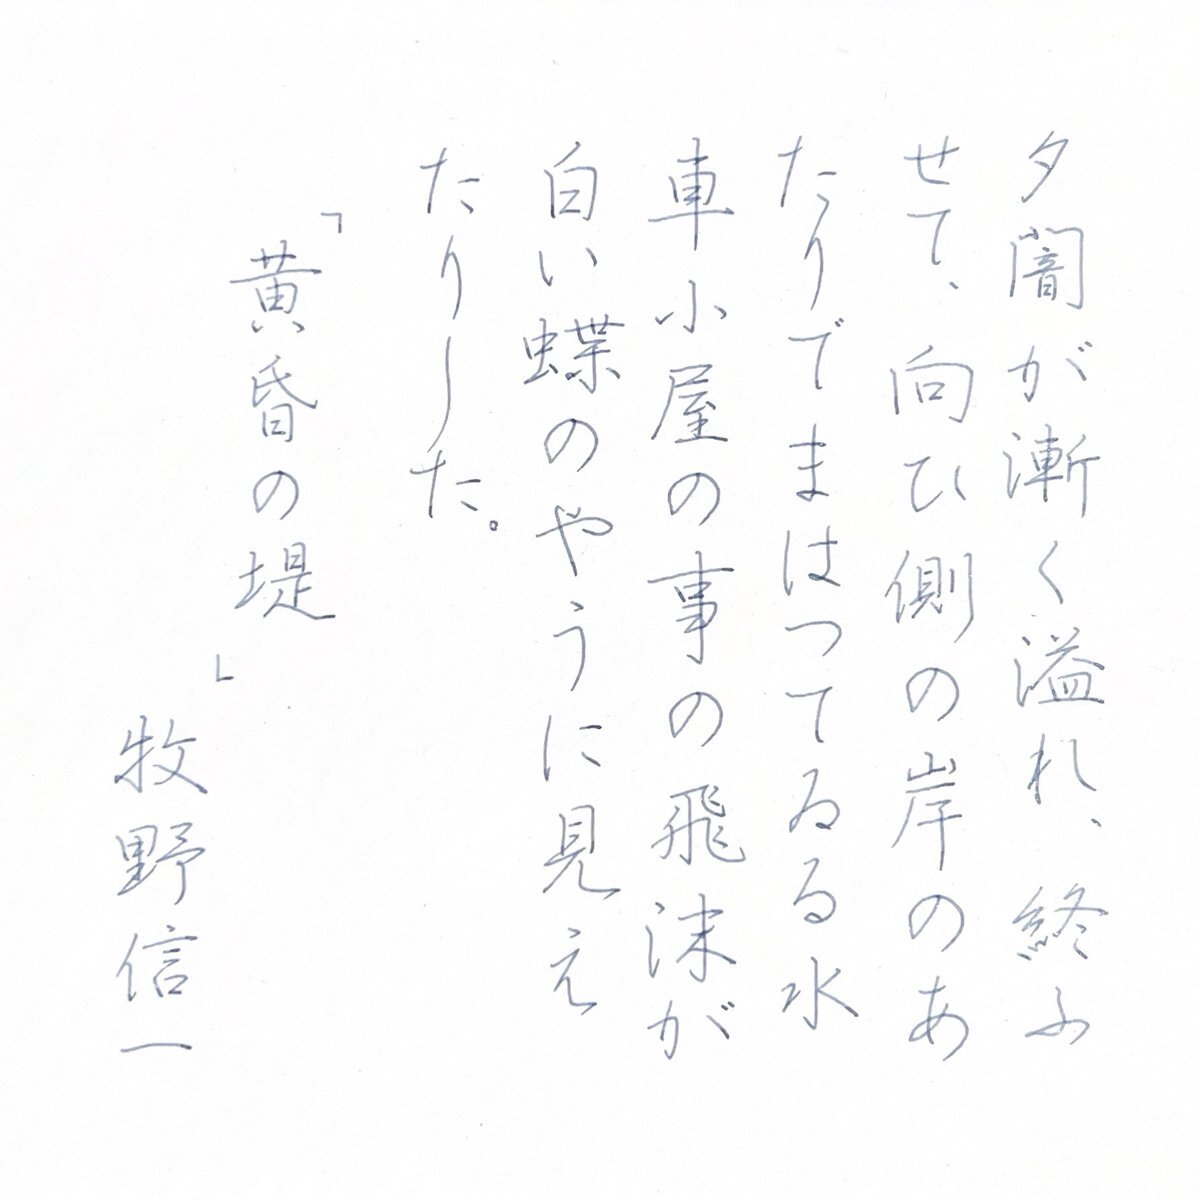 夕闇が漸く溢れ、終ふ
せて、向ひ側の岸のあ
たりでまはつてゐる水
車小屋の事の飛沫が
白い蝶のやうに見え
たりした。
「黄昏の堤」
牧野信一